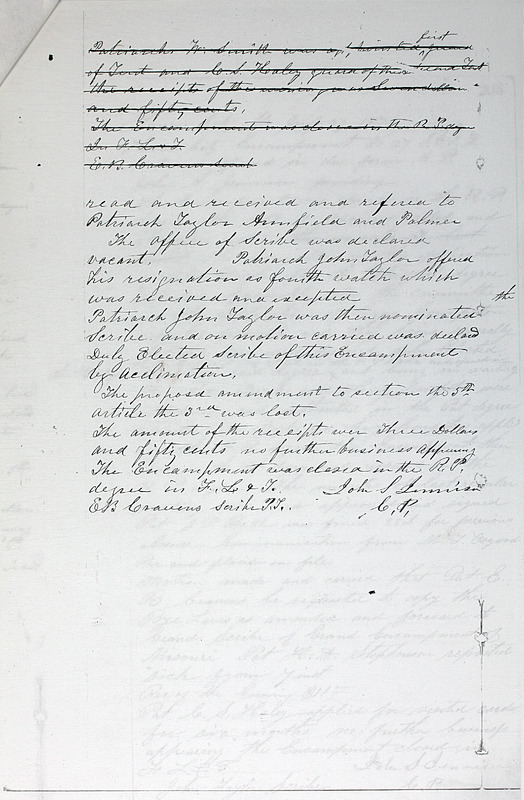 Patriarchs W. Smith was ap, first
of Tent and C. S. Haley guard of this and Tent
the receipts of the evening was Seven dollars
and fifty cents.
The Encampment was closed in the R. P. deg
In F. L & T.
E. B. Cravens Scribe
read and received and refered to
Patriarch Taylor Armfield and Palmer
The office of Scribe was declared
vacant. Patriarch John Taylor offered
his resignation as fourth watch which
was received and excepted
the
Patriarch John Taylor was then nominated
Scribe and on motion carried was declared
Duly Elected Scribe of this Encampment
by acclimation.
The proposed amendment to section the 5th
article the 3rd was lost.
The amount of the receipts wer Three Dollars
and fifty cents no further business appearing
The Encampment was closed in the R. P.
degree in F. L & T. John S
EB Cravens Scribe P.T. C. P.